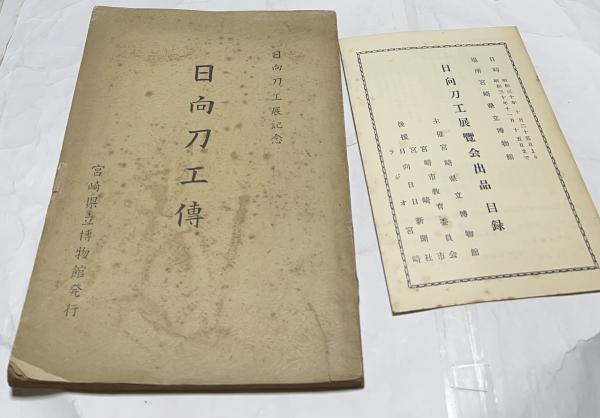 日向刀工展記念
日向刀工傳
宮崎県立博物館発行
日時 昭和三十年十月二十五日より
昭和三十年十一月十五日まで
場所 宮崎県立博物館
日向刀工展覧会出品目録
主催 宮崎県立博物館
宮崎市教育委員会
後援 日向日日新聞社
ラジオ宮崎